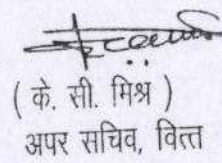 ( के. सी. मिश्र )
अपर सचिव, वित्त